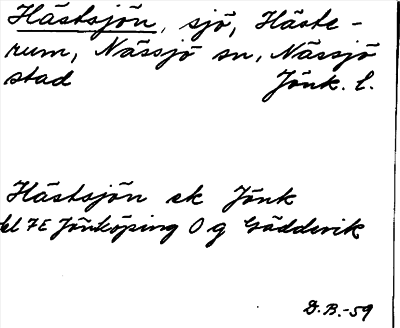 Hästsjön, sjö, Häste-
rum, Nässjö sn, Nässjö
stad Jönk. l.
Hästsjön ek Jönk
bl 7E Jönköping O g Gäddevik
D.B.-59